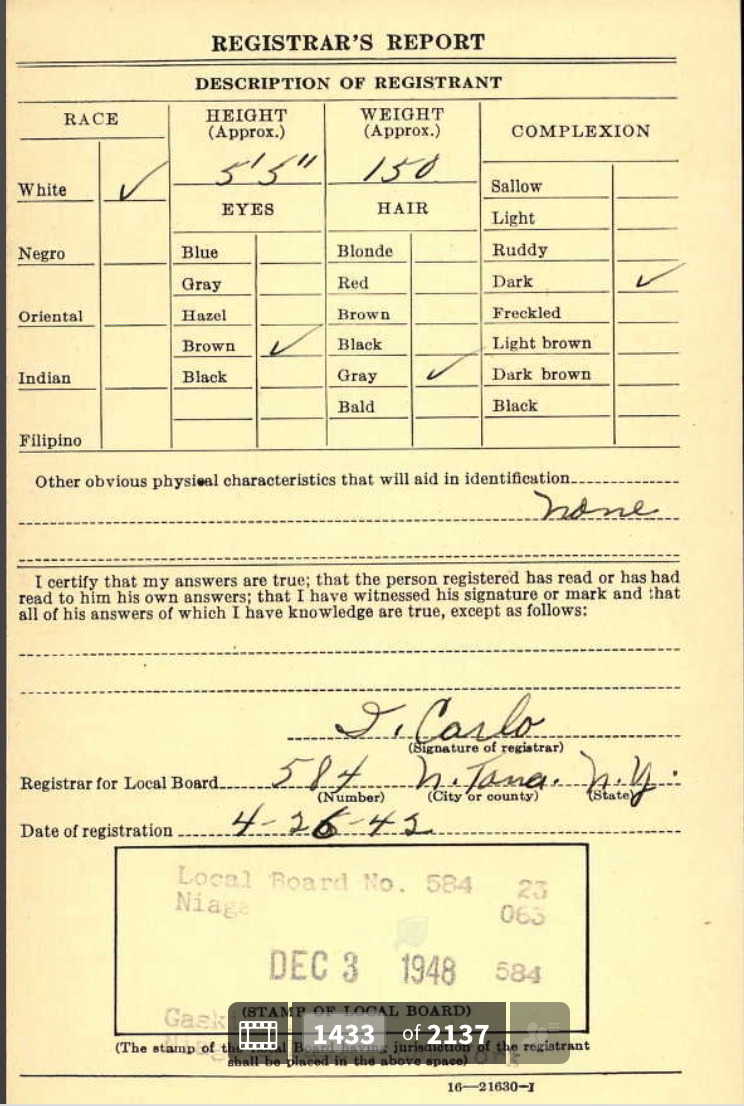 REGISTRAR'S REPORT
DESCRIPTION OF REGISTRANT
RACE
HEIGHT
(Approx.)
WEIGHT
(Approx.)
COMPLEXION
5'5"
150
White ✓
Sallow
EYES
HAIR
Light
Negro
Blue
Blonde
Ruddy
Gray
Red
Dark ✓
Oriental
Hazel
Brown
Freckled
Brown ✓
Black
Light brown
Indian
Black
Gray ✓
Dark brown
Bald
Black
Filipino
Other obvious physical characteristics that will aid in identification
none
I certify that my answers are true; that the person registered has read or has had
read to him his own answers; that I have witnessed his signature or mark and that
all of his answers of which I have knowledge are true, except as follows:
D. Carlo
(Signature of registrar)
Registrar for Local Board 584 N. Tona. N.Y.
(Number) (City or county) (State)
Date of registration 4-26-42
Local Board No. 584 23
063
DEC 3 1948 584
(STAMP OF LOCAL BOARD)
1433 of 2137
(The stamp of the Local Board having jurisdiction of the registrant
shall be placed in the above space)
16—21630-1